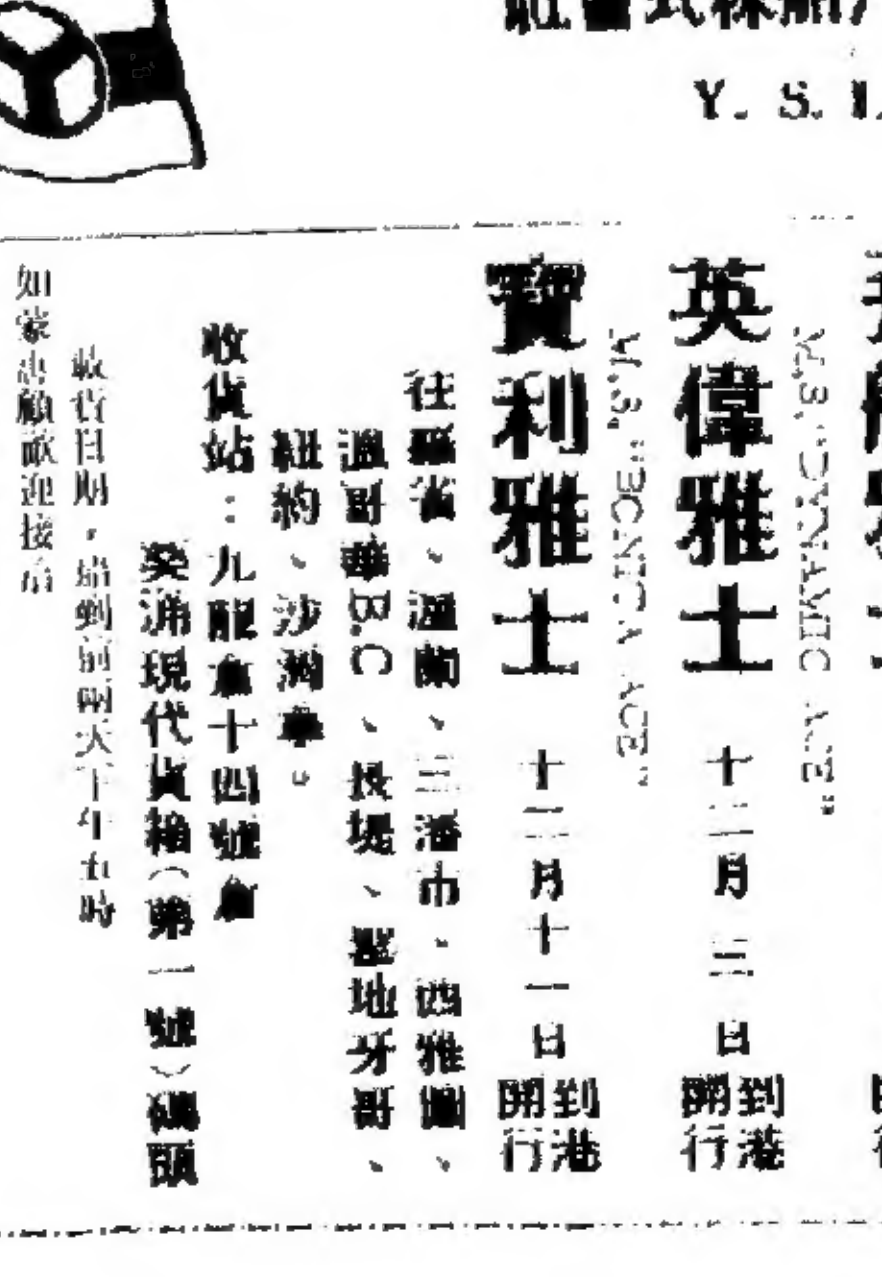 船株式會社
Y. S.
M.S. "DYNAMIC ACE"
英偉雅士 十二月 三 日 到港開行
M.S. ACE"
寶利雅士 十二月十一日 到港開行
往羅省、溫蘭、三潘市、西雅圖、
溫哥華B.C、投堤、聖地牙哥、
紐約、沙灣拿。
收貨站：九龍倉十四號倉
葵涌現代貨箱（第一號）碼頭
收貨日期，船到前兩天下午五時
如蒙惠顧歡迎接洽